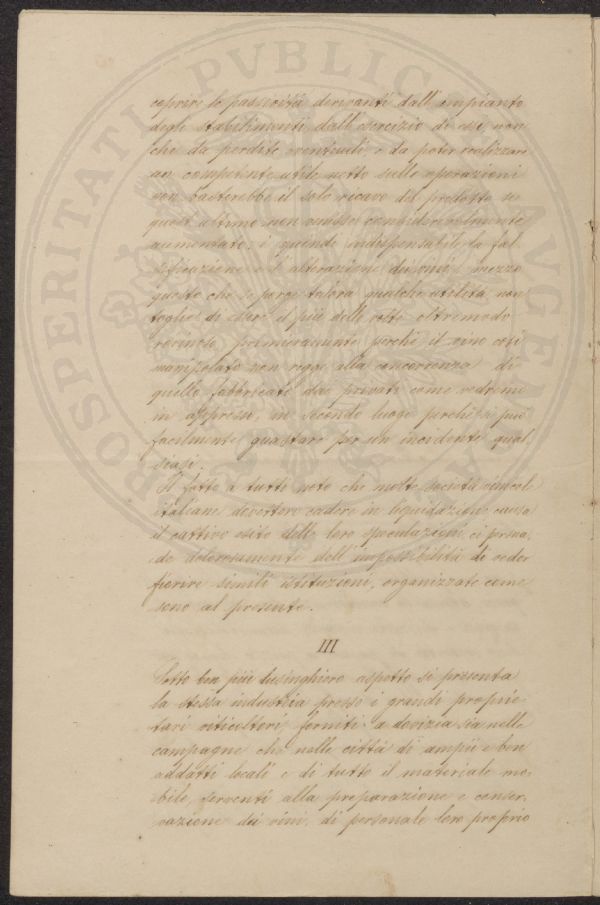 PROSPERITATI PVBLICAE AVGENDAE
coprire le passività derivanti dall'impianto
degli stabilimenti, dall'esercizio di essi, non
che da perdite eventuali, e da poter realizzare
un competente utile netto sulle operazioni
non basterebbe il solo ricavo del prodotto se
quest'ultimo non venisse considerevolmente
aumentato; è quindi indispensabile la fal-
sificazione e l'alterazione dei vini, mezzo
questo che se porge talora qualche utilità, non
toglie di essere il più delle volte oltremodo
rovinoso, primieramente perchè il vino così
manipolato non regge alla concorrenza di
quello fabbricato dai privati come vedremo
in appresso, in secondo luogo perchè si può
facilmente guastare per un incidente qual
siasi.
Il fatto a tutti noto che molte società vinicole
italiane dovettero cadere in liquidazione causa
il cattivo esito delle loro speculazioni, ci persua-
de dolorosamente dell'impossibilità di veder
fiorire simili istituzioni, organizzate come
sono al presente.
III
Sotto ben più lusinghiero aspetto si presenta
la stessa industria presso i grandi proprie-
tari viticoltori, forniti a dovizia sia nelle
campagne che nelle città di ampii e ben
addatti locali e di tutto il materiale mo-
bile, serventi alla preparazione e conser-
vazione dei vini, di personale loro proprio